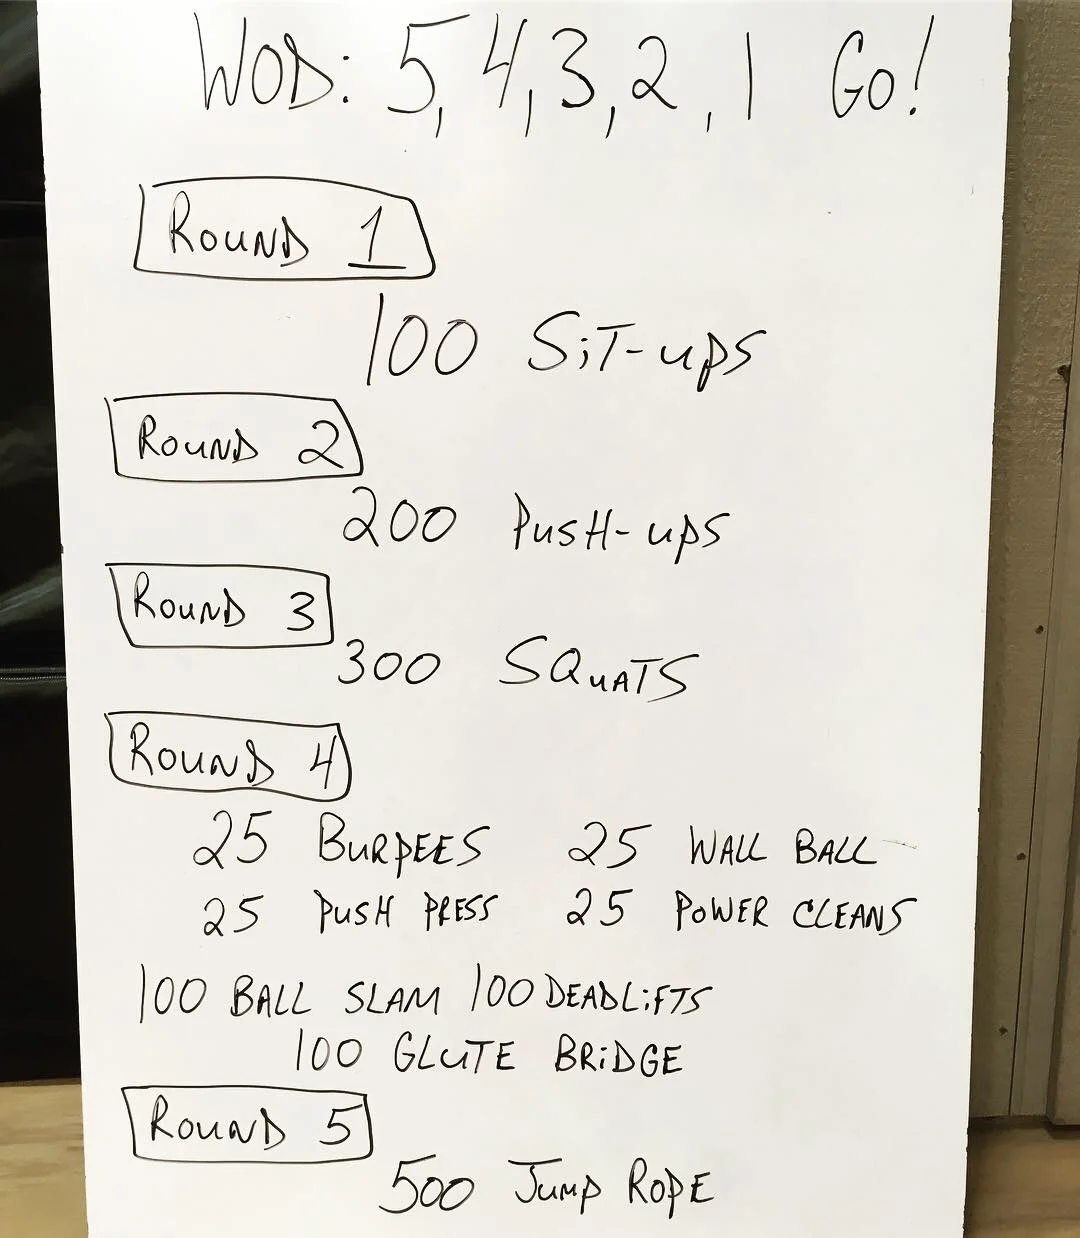 WOD: 5, 4, 3, 2, 1 Go!
ROUND 1
100 SiT-ups
ROUND 2
200 PusH-ups
ROUND 3
300 SQuATS
ROUND 4
25 BURPEES 25 WALL BALL
25 PusH PRESS 25 POWER CLEANS
100 BALL SLAM 100 DEADLiFTS
100 GLUTE BRiDGE
ROUND 5
500 Jump ROPE